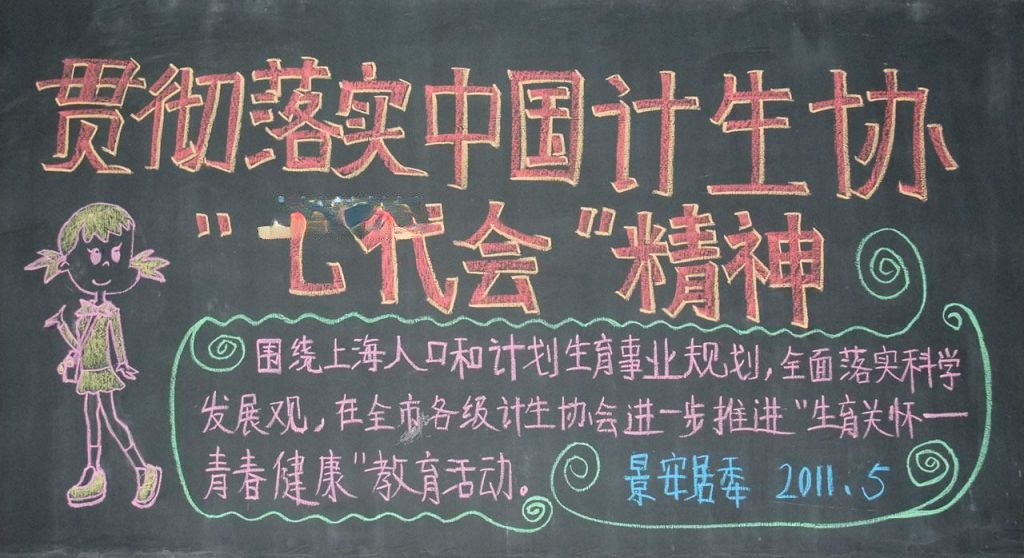 贯彻落实中国计生协
"七代会"精神
围绕上海人口和计划生育事业规划,全面落实科学
发展观,在全市各级计生协会进一步推进"生育关怀—
青春健康"教育活动。
景安居委 2011.5